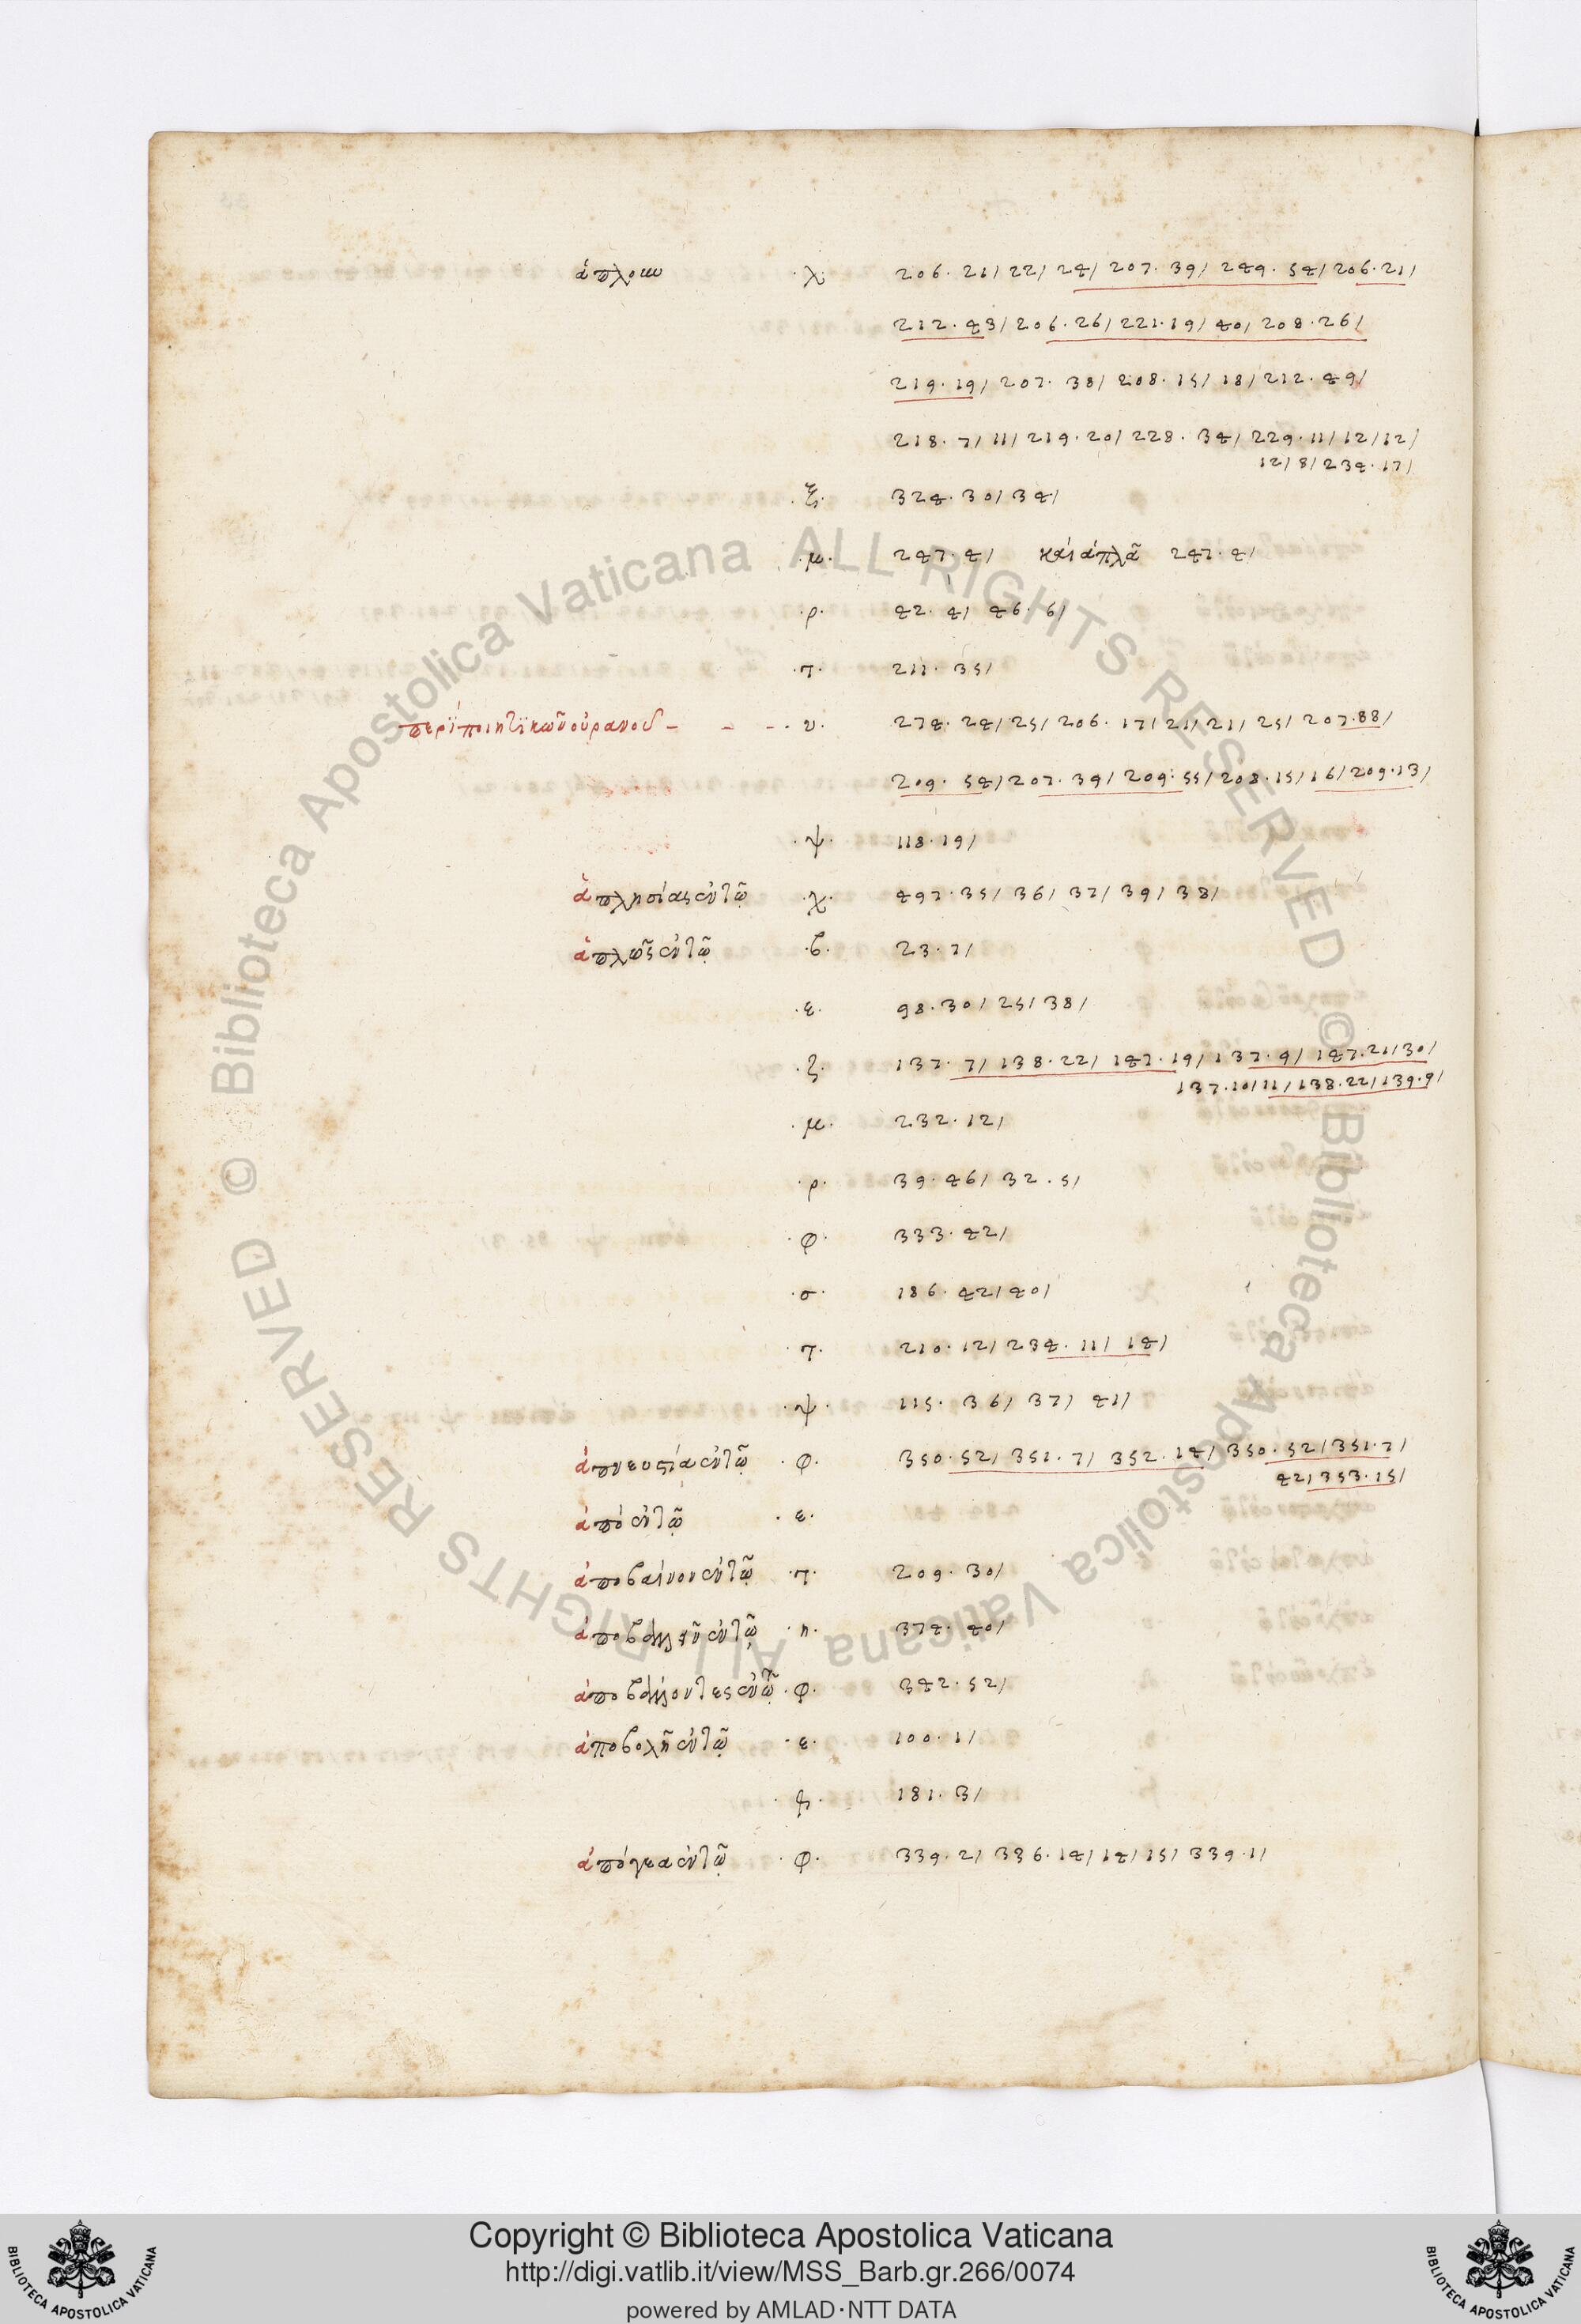 ἁπλοῦν ·λ· 206·21/22/24/207·39/249·54/206·21/
212·43/206·26/221·19/40/208·26/
219·19/207·38/208·15/18/212·49/
218·7/11/219·20/228·34/229·11/12/12/
12/8/234·17/
·ξ· 324·30/34/
·μ· 247·4/ καὶ ἁπλᾶ 247·4/
·ρ· 42·4/ 46·6/
·τ· 211·35/
περὶ ποιητικῶν οὐρανοῦ - - - ·υ· 274·24/25/206·17/21/21/25/207·88/
209·54/207·39/209·55/208·15/16/209·13/
·ψ· 118·19/
ἀπλησίας ἐν τῷ ·χ· 497·35/36/37/39/38/
ἁπλῶς ἐν τῷ ·β· 23·7/
·ε· 98·30/25/38/
·ζ· 137·7/138·22/147·19/137·9/147·21/30/
137·10/11/138·22/139·9/
·μ· 232·12/
·ρ· 39·46/32·5/
·φ· 333·42/
·σ· 186·42/40/
·τ· 210·12/234·11/14/
·ψ· 115·36/37/41/
ἀπνευστία ἐν τῷ ·φ· 350·52/351·7/352·14/350·52/351·7/
42/353·15/
ἀπὸ ἐν τῷ ·ε·
ἀποβαίνον ἐν τῷ ·τ· 209·30/
ἐν τῷ ·η· 374·40/
ἀποβάλλοντες ἐν τῷ ·φ· 342·52/
ἀποβολὴ ἐν τῷ ·ε· 100·1/
181·3/
ἀπόγεα ἐν τῷ ·φ· 339·2/336·14/14/15/339·1/
© Biblioteca Apostolica Vaticana ALL RIGHTS RESERVED © Biblioteca Apostolica Vaticana ALL RIGHTS RESERVED
Copyright © Biblioteca Apostolica Vaticana
http://digi.vatlib.it/view/MSS_Barb.gr.266/0074
powered by AMLAD·NTT DATA
BIBLIOTECA APOSTOLICA VATICANA
BIBLIOTECA APOSTOLICA VATICANA